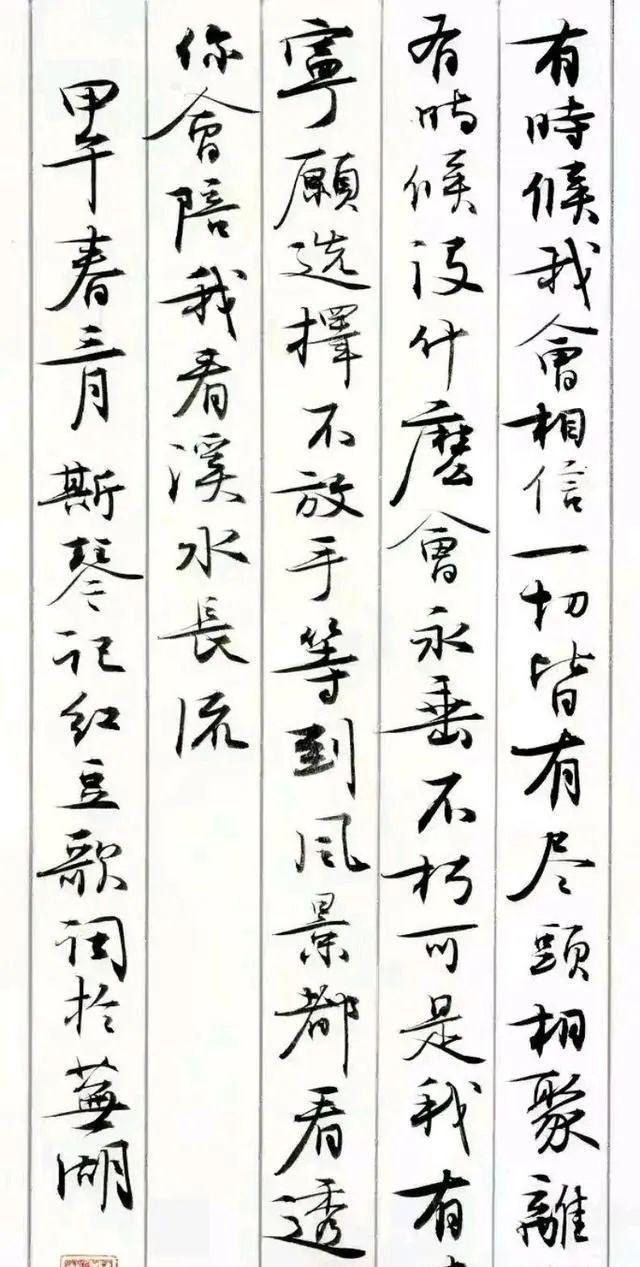 有時候我會相信一切皆有尽頭相聚離
有時候没什麼會永垂不朽可是我有
寧願选擇不放手等到風景都看透
你會陪我看溪水長流
甲午春三月斯琴记紅豆歌词於蕪湖